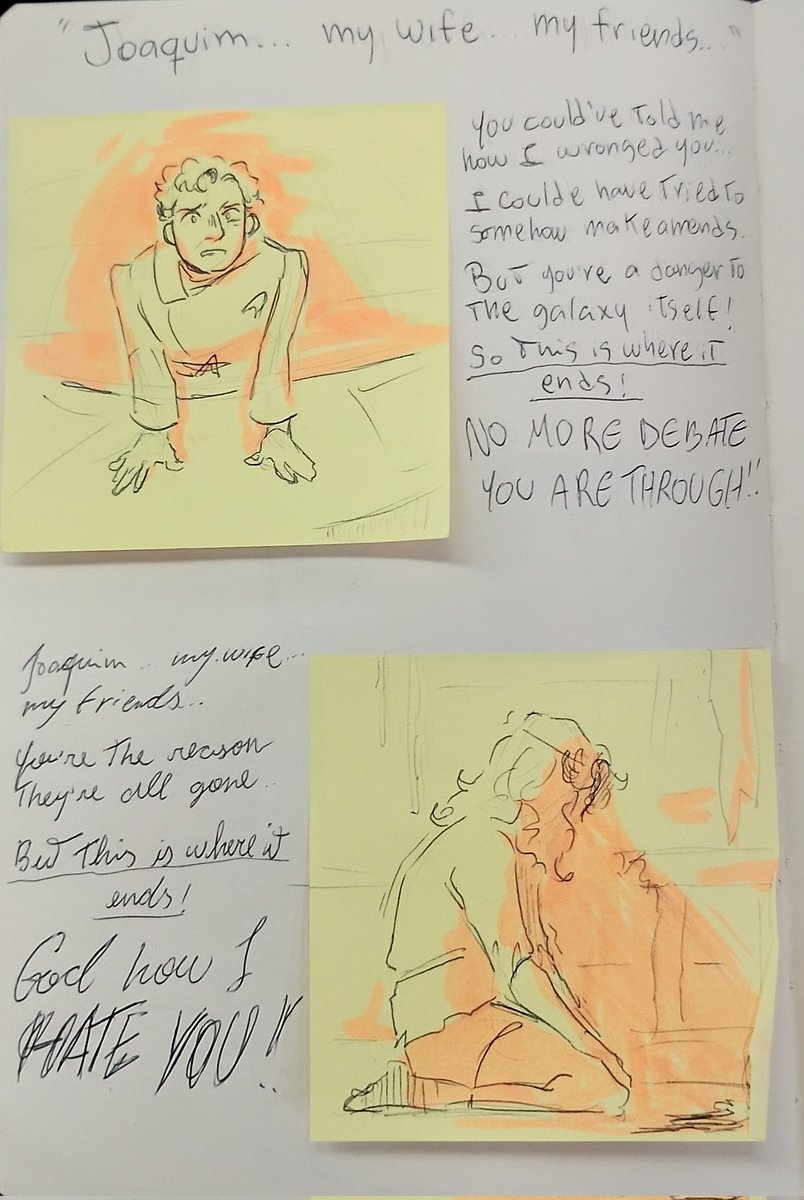 "Joaquim... my wife... my friends..."
You could've told me
how I wronged you...
I coulde have tried to
somehow make amends.
But you're a danger to
the galaxy itself!
So this is where it
ends!
NO MORE DEBATE
YOU ARE THROUGH!!
Joaquim... my wife...
my friends..
You're the reason
They're all gone..
But this is where it
ends!
God how I
HATE YOU!!